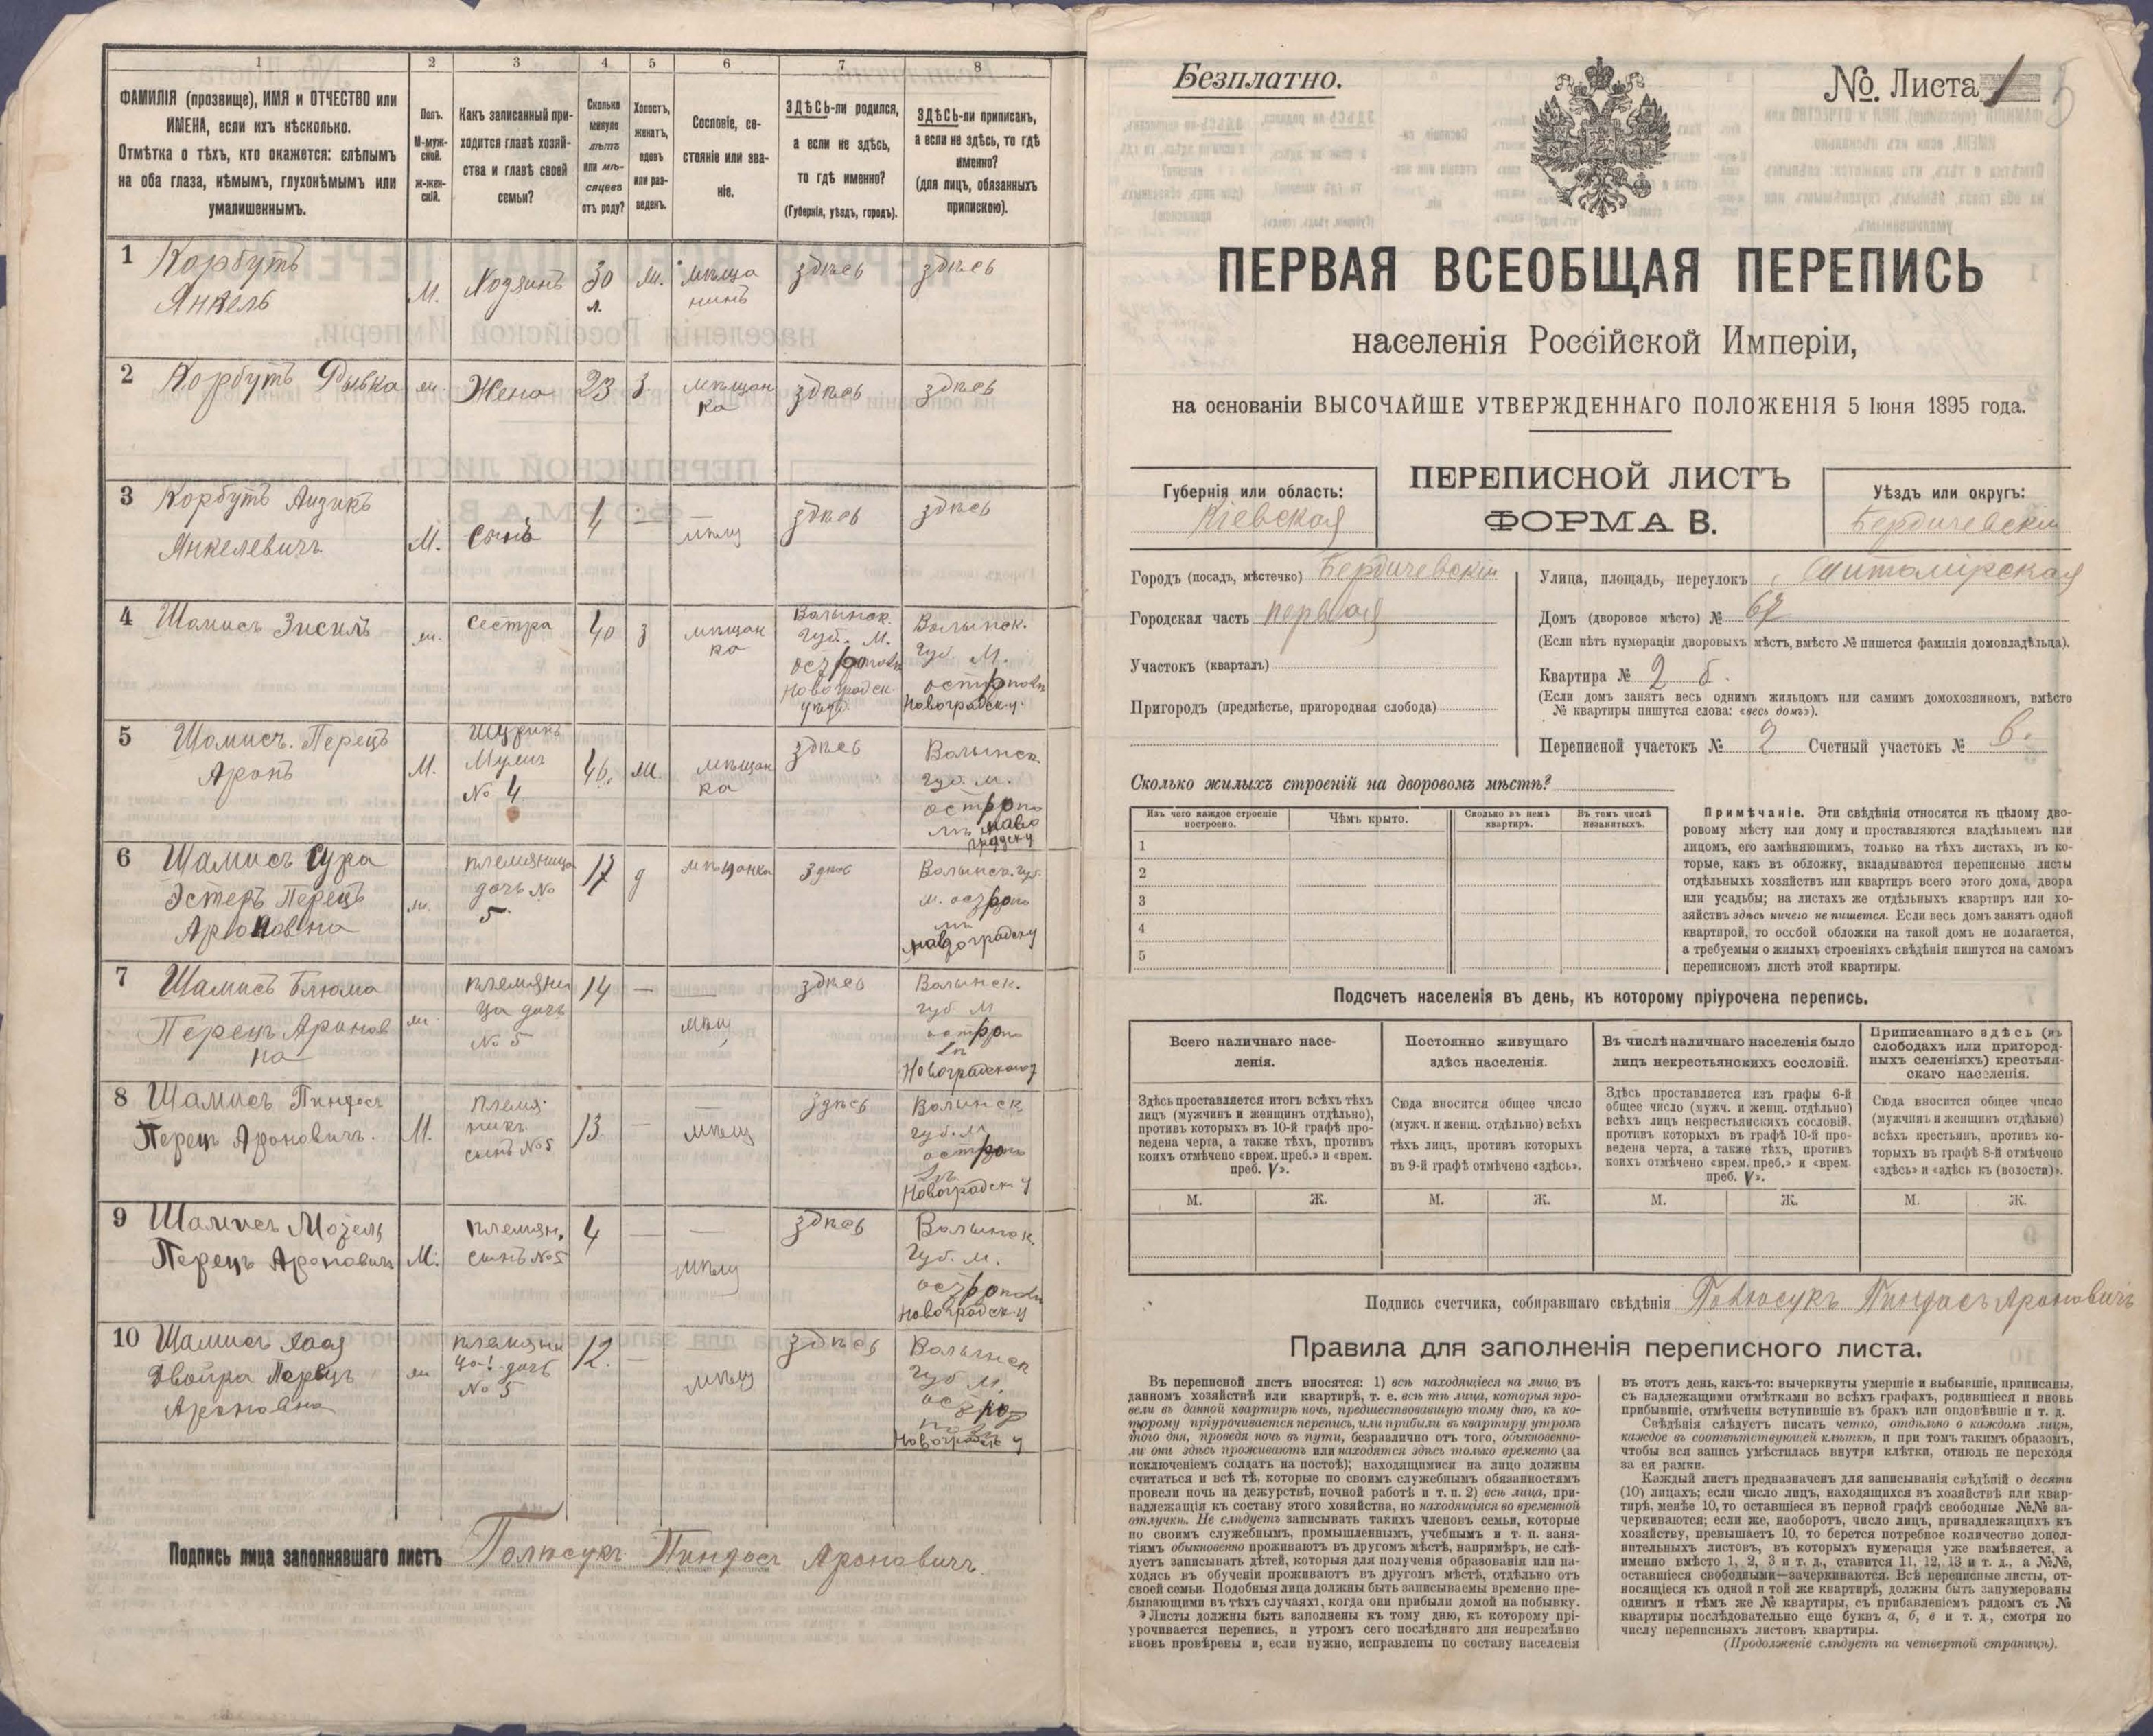 1 2 3 4 5 6 7 8
ФАМИЛІЯ (прозвище), ИМЯ и ОТЧЕСТВО или
ИМЕНА, если ихъ нѣсколько.
Отмѣтка о тѣхъ, кто окажется: слѣпымъ
на оба глаза, нѣмымъ, глухонѣмымъ или
умалишеннымъ.
Полъ.
М-муж-
ской.
ж-жен-
скій.
Какъ записанный при-
ходится главѣ хозяй-
ства и главѣ своей
семьи?
Сколько
минуло
лѣтъ
или мѣ-
сяцевъ
отъ роду?
Холостъ,
женатъ,
вдовъ
или раз-
веденъ.
Сословіе, со-
стояніе или зва-
ніе.
ЗДѢСЬ-ли родился,
а если не здѣсь,
то гдѣ именно?
(Губернія, уѣздъ, городъ).
ЗДѢСЬ-ли приписанъ,
а если не здѣсь, то гдѣ
именно?
(для лицъ, обязанныхъ
припискою).
1 Корбутъ
Янкель
М.
Хозяинъ
30
л.
ж.
мѣща
нинъ
здѣсь
здѣсь
2 Корбутъ Рывка
ж.
Жена
23
з.
мѣщан
ка
здѣсь
здѣсь
3 Корбутъ Аизикъ
Янкелевичъ
М.
сынъ
4
—
—
мѣщ
здѣсь
здѣсь
4 Шамисъ Зисилъ
ж.
сестра
40
з
мѣщан
ка
Волынск.
губ. М.
Новоградск.
уѣзд.
Волынск.
губ. М.
Новоградск.у.
5 Шамисъ. Перецъ
Аронъ
М.
№ 4
46.
ж.
мѣщан
ка
здѣсь
Волынск.
губ. м.
остропо
6 Шамисъ Сура
Эстеръ Перецъ
Ароновна
ж.
племяница
дочь №
5.
17
д
мѣщанка
здѣсь
Волынск. губ.
7 Шамисъ Блюма
Перецъ Аронов
на
ж
племяни
ца дочь
№ 5
14
—
—
мѣщ
здѣсь
Волынск.
губ. М
остропо
8 Шамисъ Пинхасъ
Перецъ Ароновичъ.
М.
племя-
никъ
сынъ №5
13.
—
—
мѣщ
здѣсь
Волынск
губ. м
остропо
Новоградск у
9 Шамисъ Мозель
Перецъ Ароновичъ
М.
племян.
сынъ №5
4
—
—
мѣщ
здѣсь
Волынск.
губ. м.
Новоградск.у
10 Шамисъ Хася
Двойра Перецъ
Ароновна
ж
племяни
ца! дочь
№ 5
12.
—
мѣщ
здѣсь
Волынск
губ М.
Новоградск у
Подпись лица заполнявшаго листъ Пинхасъ Ароновичъ.
Безплатно.
№. Листа 1
ПЕРВАЯ ВСЕОБЩАЯ ПЕРЕПИСЬ
населенія Россійской Имперіи,
на основаніи ВЫСОЧАЙШЕ УТВЕРЖДЕННАГО ПОЛОЖЕНІЯ 5 Іюня 1895 года.
Губернія или область:
Кіевская
ПЕРЕПИСНОЙ ЛИСТЪ
ФОРМА В.
Уѣздъ или округъ:
Бердичевскій
Городъ (посадъ, мѣстечко) Бердичевскій
Городская часть первая
Участокъ (кварталъ)
Пригородъ (предмѣстье, пригородная слобода)
Улица, площадь, переулокъ Житомірская
Домъ (дворовое мѣсто) № 67
(Если нѣтъ нумераціи дворовыхъ мѣстъ, вмѣсто № пишется фамилія домовладѣльца).
Квартира № 2 б.
(Если домъ занятъ весь однимъ жильцомъ или самимъ домохозяиномъ, вмѣсто
№ квартиры пишутся слова: «весь домъ»).
Переписной участокъ № 2 Счетный участокъ № 6.
Сколько жилыхъ строеній на дворовомъ мѣстѣ?
Изъ чего каждое строеніе
построено.
Чѣмъ крыто.
Сколько въ немъ
квартиръ.
Въ томъ числѣ
незанятыхъ.
1
2
3
4
5
Примѣчаніе. Эти свѣдѣнія относятся къ цѣлому дво-
ровому мѣсту или дому и проставляются владѣльцемъ или
лицомъ, его замѣняющимъ, только на тѣхъ листахъ, въ ко-
торые, какъ въ обложку, вкладываются переписные листы
отдѣльныхъ хозяйствъ или квартиръ всего этого дома, двора
или усадьбы; на листахъ же отдѣльныхъ квартиръ или хо-
зяйствъ здѣсь ничего не пишется. Если весь домъ занятъ одной
квартирой, то особой обложки на такой домъ не полагается,
а требуемыя о жилыхъ строеніяхъ свѣдѣнія пишутся на самомъ
переписномъ листѣ этой квартиры.
Подсчетъ населенія въ день, къ которому пріурочена перепись.
Всего наличнаго насе-
ленія.
Постоянно живущаго
здѣсь населенія.
Въ числѣ наличнаго населенія было
лицъ некрестьянскихъ сословій.
Приписаннаго здѣсь (въ
слободахъ или пригород-
ныхъ селеніяхъ) крестьян-
скаго населенія.
Здѣсь проставляется итогъ всѣхъ тѣхъ
лицъ (мужчинъ и женщинъ отдѣльно),
противъ которыхъ въ 10-й графѣ про-
ведена черта, а также тѣхъ, противъ
коихъ отмѣчено «врем. преб.» и «врем.
преб. V».
Сюда вносится общее число
(мужч. и женщ. отдѣльно) всѣхъ
тѣхъ лицъ, противъ которыхъ
въ 9-й графѣ отмѣчено «здѣсь».
Здѣсь проставляется изъ графы 6-й
общее число (мужч. и женщ. отдѣльно)
всѣхъ лицъ некрестьянскихъ сословій,
противъ которыхъ въ графѣ 10-й про-
ведена черта, а также тѣхъ, противъ
коихъ отмѣчено «врем. преб.» и «врем.
преб. V».
Сюда вносится общее число
(мужчинъ и женщинъ отдѣльно)
всѣхъ крестьянъ, противъ ко-
торыхъ въ графѣ 8-й отмѣчено
«здѣсь» и «здѣсь къ (волости)».
М. Ж. М. Ж. М. Ж. М. Ж.
Подпись счетчика, собиравшаго свѣдѣнія Пинхасъ Ароновичъ
Правила для заполненія переписного листа.
Въ переписной листъ вносятся: 1) всѣ находящіеся на лицо въ
данномъ хозяйствѣ или квартирѣ, т. е. всѣ тѣ лица, которыя про-
вели въ данной квартирѣ ночь, предшествовавшую тому дню, къ ко-
торому пріурочивается перепись, или прибыли въ квартиру утромъ
того дня, проведя ночь въ пути, безразлично отъ того, обыкновенно-
ли они здѣсь проживаютъ или находятся здѣсь только временно (за
исключеніемъ солдатъ на постоѣ); находящимися на лицо должны
считаться и всѣ тѣ, которые по своимъ служебнымъ обязанностямъ
провели ночь на дежурствѣ, ночной работѣ и т. п. 2) всѣ лица, при-
надлежащія къ составу этого хозяйства, но находящіяся во временной
отлучкѣ. Не слѣдуетъ записывать такихъ членовъ семьи, которые
по своимъ служебнымъ, промышленнымъ, учебнымъ и т. п. заня-
тіямъ обыкновенно проживаютъ въ другомъ мѣстѣ, напримѣръ, не слѣ-
дуетъ записывать дѣтей, которыя для полученія образованія или на-
ходясь въ обученіи проживаютъ въ другомъ мѣстѣ, отдѣльно отъ
своей семьи. Подобныя лица должны быть записываемы временно пре-
бывающими въ тѣхъ случаяхъ, когда они прибыли домой на побывку.
Листы должны быть заполнены къ тому дню, къ которому прі-
урочивается перепись, и утромъ сего послѣдняго дня непремѣнно
вновь провѣрены и, если нужно, исправлены по составу населенія
въ этотъ день, какъ-то: вычеркнуты умершіе и выбывшіе, приписаны,
съ надлежащими отмѣтками во всѣхъ графахъ, родившіеся и вновь
прибывшіе, отмѣчены вступившіе въ бракъ или овдовѣвшіе и т. д.
Свѣдѣнія слѣдуетъ писать четко, отдѣльно о каждомъ лицѣ,
каждое въ соотвѣтствующей клѣткѣ, и при томъ такимъ образомъ,
чтобы вся запись умѣстилась внутри клѣтки, отнюдь не переходя
за ея рамки.
Каждый листъ предназначенъ для записыванія свѣдѣній о десяти
(10) лицахъ; если число лицъ, находящихся въ хозяйствѣ или квар-
тирѣ, менѣе 10, то оставшіеся въ первой графѣ свободные №№ за-
черкиваются; если же, наоборотъ, число лицъ, принадлежащихъ къ
хозяйству, превышаетъ 10, то берется потребное количество допол-
нительныхъ листовъ, въ которыхъ нумерація уже измѣняется, а
именно вмѣсто 1, 2, 3 и т. д., ставится 11, 12, 13 и т. д., а №№,
оставшіеся свободными—зачеркиваются. Всѣ переписные листы, от-
носящіеся къ одной и той же квартирѣ, должны быть занумерованы
однимъ и тѣмъ же № квартиры, съ прибавленіемъ рядомъ съ №
квартиры послѣдовательно еще буквъ а, б, в и т. д., смотря по
числу переписныхъ листовъ квартиры.
(Продолженіе слѣдуетъ на четвертой страницѣ).